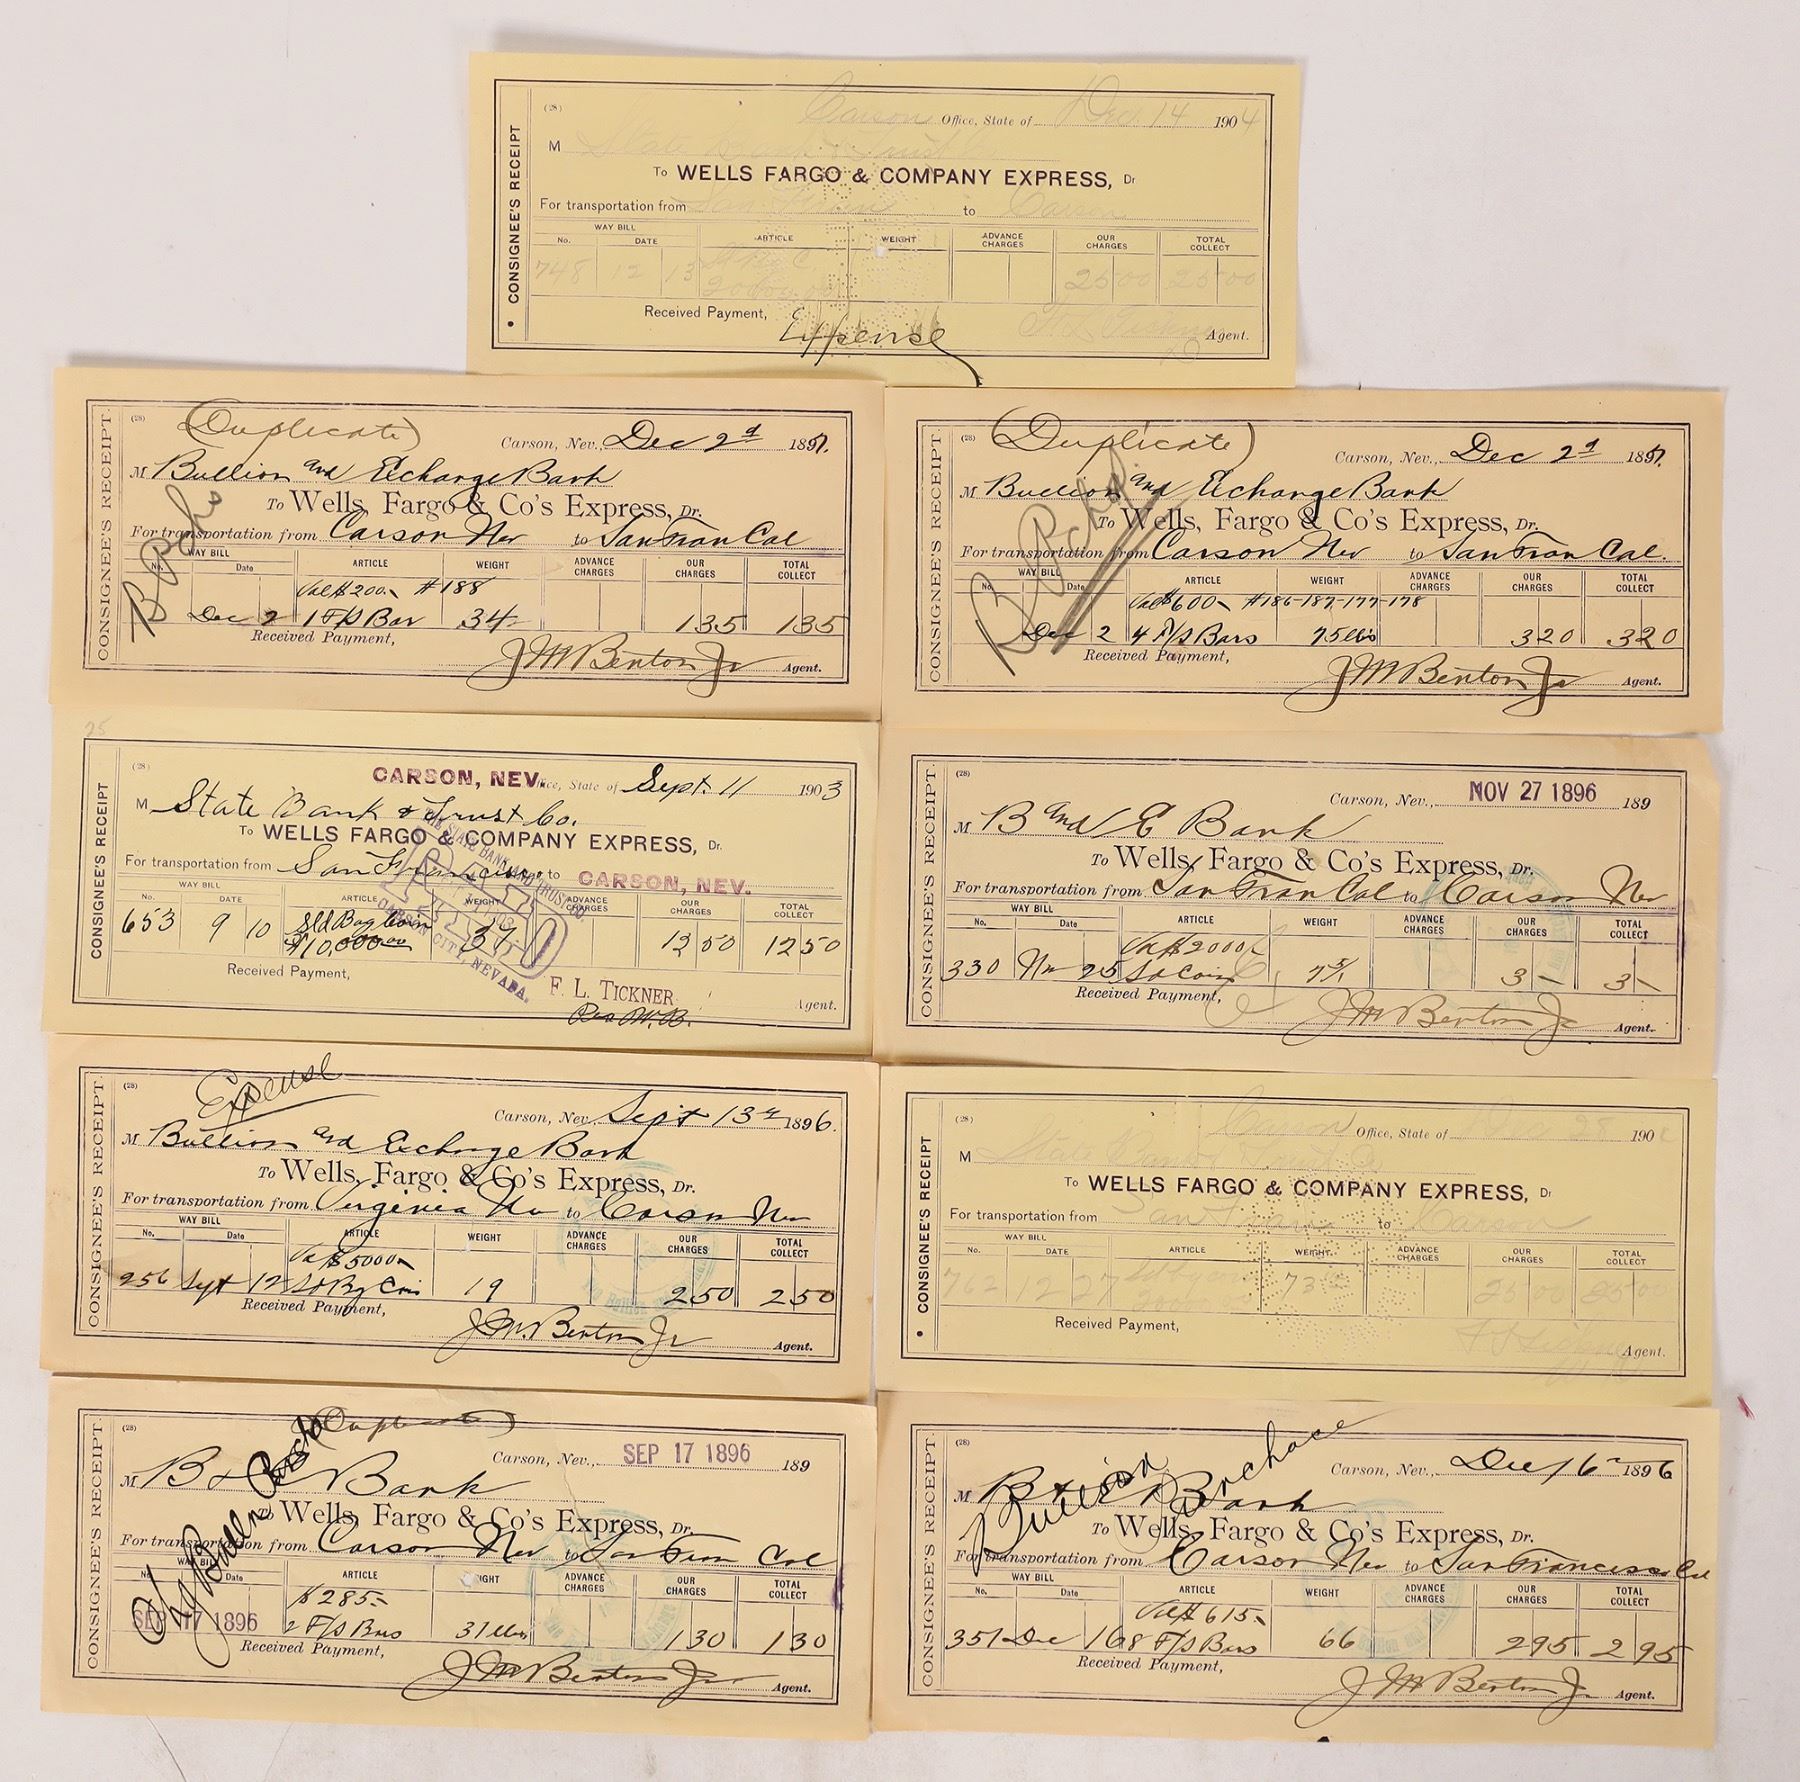 CONSIGNEE'S RECEIPT
(28)
Carson Office, State of Dec. 14 1904
M State Bank & Trust Co
To WELLS FARGO & COMPANY EXPRESS, Dr
For transportation from San Fran to Carson
WAY BILL ARTICLE WEIGHT ADVANCE CHARGES OUR CHARGES TOTAL COLLECT
No. DATE
748 12 13 25 00 25 00
Received Payment, Agent.
Expense
CONSIGNEE'S RECEIPT
(28)
(Duplicate)
Carson, Nev. Dec 2d 1897.
M Bullion and Exchange Bank
To Wells, Fargo & Co's Express, Dr.
For transportation from Carson Nev to San Fran Cal
WAY BILL ARTICLE WEIGHT ADVANCE CHARGES OUR CHARGES TOTAL COLLECT
No. Date
Val $200.- #188
Dec 2 1 F/S Bar 34 1 35 1 35
Received Payment,
J M Benton Jr Agent.
CONSIGNEE'S RECEIPT
(28)
(Duplicate)
Carson, Nev., Dec 2d 1897.
M Bullion and Exchange Bank
To Wells, Fargo & Co's Express, Dr.
For transportation from Carson Nev to San Fran Cal.
WAY BILL ARTICLE WEIGHT ADVANCE CHARGES OUR CHARGES TOTAL COLLECT
No. Date
Val $600- #186-187-177-178
Dec 2 4 F/S Bars 75 lbs 3 20 3 20
Received Payment,
J M Benton Jr Agent.
25
CONSIGNEE'S RECEIPT
(28)
CARSON, NEV. State of Sept. 11 1903
M State Bank & Trust Co.
To WELLS FARGO & COMPANY EXPRESS, Dr.
For transportation from San Francisco to CARSON, NEV.
WAY BILL ARTICLE WEIGHT ADVANCE CHARGES OUR CHARGES TOTAL COLLECT
No. DATE
653 9 10 Sld Bag Coin 37 12 50 12 50
$10,000.00
THE STATE BANK AND TRUST CO.
PAID
CARSON CITY, NEVADA.
Received Payment, F. L. TICKNER Agent.
CONSIGNEE'S RECEIPT
(28)
Carson, Nev., NOV 27 1896 189
M B and E Bank
To Wells, Fargo & Co's Express, Dr.
For transportation from San Fran Cal to Carson Nev
WAY BILL ARTICLE WEIGHT ADVANCE CHARGES OUR CHARGES TOTAL COLLECT
No. Date
Val $2000
330 Nv 25 Sd Coin 3 - 3 -
Received Payment,
J M Benton Jr Agent.
CONSIGNEE'S RECEIPT
(28)
Expense
Carson, Nev. Sept 13th 1896.
M Bullion and Exchange Bank
To Wells, Fargo & Co's Express, Dr.
For transportation from Virginia Nv to Carson Nev
WAY BILL ARTICLE WEIGHT ADVANCE CHARGES OUR CHARGES TOTAL COLLECT
No. Date
Val $5000-
256 Sept 12 Sd Bg Coin 19 2 50 2 50
Received Payment,
J. M. Benton Jr Agent.
CONSIGNEE'S RECEIPT
(28)
Carson Office, State of Dec 28 190
M
To WELLS FARGO & COMPANY EXPRESS, Dr
For transportation from San Fran to Carson
WAY BILL ARTICLE WEIGHT ADVANCE CHARGES OUR CHARGES TOTAL COLLECT
No. DATE
762 12 27 73 25 00 25 00
Received Payment, Agent.
CONSIGNEE'S RECEIPT
(28)
(Duplicate)
Carson, Nev., SEP 17 1896 189
M B & E Bank
Wells, Fargo & Co's Express, Dr.
For transportation from Carson Nev to San Fran Cal
WAY BILL ARTICLE WEIGHT ADVANCE CHARGES OUR CHARGES TOTAL COLLECT
No. Date
$285-
SEP 17 1896 2 F/S Bars 31 lbs 1 30 1 30
Received Payment,
J M Benton Jr Agent.
CONSIGNEE'S RECEIPT
(28)
Bullion Purchase
Carson, Nev., Dec 16 1896
M B & E Bank
To Wells, Fargo & Co's Express, Dr.
For transportation from Carson Nev to San Francisco Cal
WAY BILL ARTICLE WEIGHT ADVANCE CHARGES OUR CHARGES TOTAL COLLECT
No. Date
Val $615-
351 Dec 16 8 F/S Bars 66 2 95 2 95
Received Payment,
J M Benton Jr. Agent.